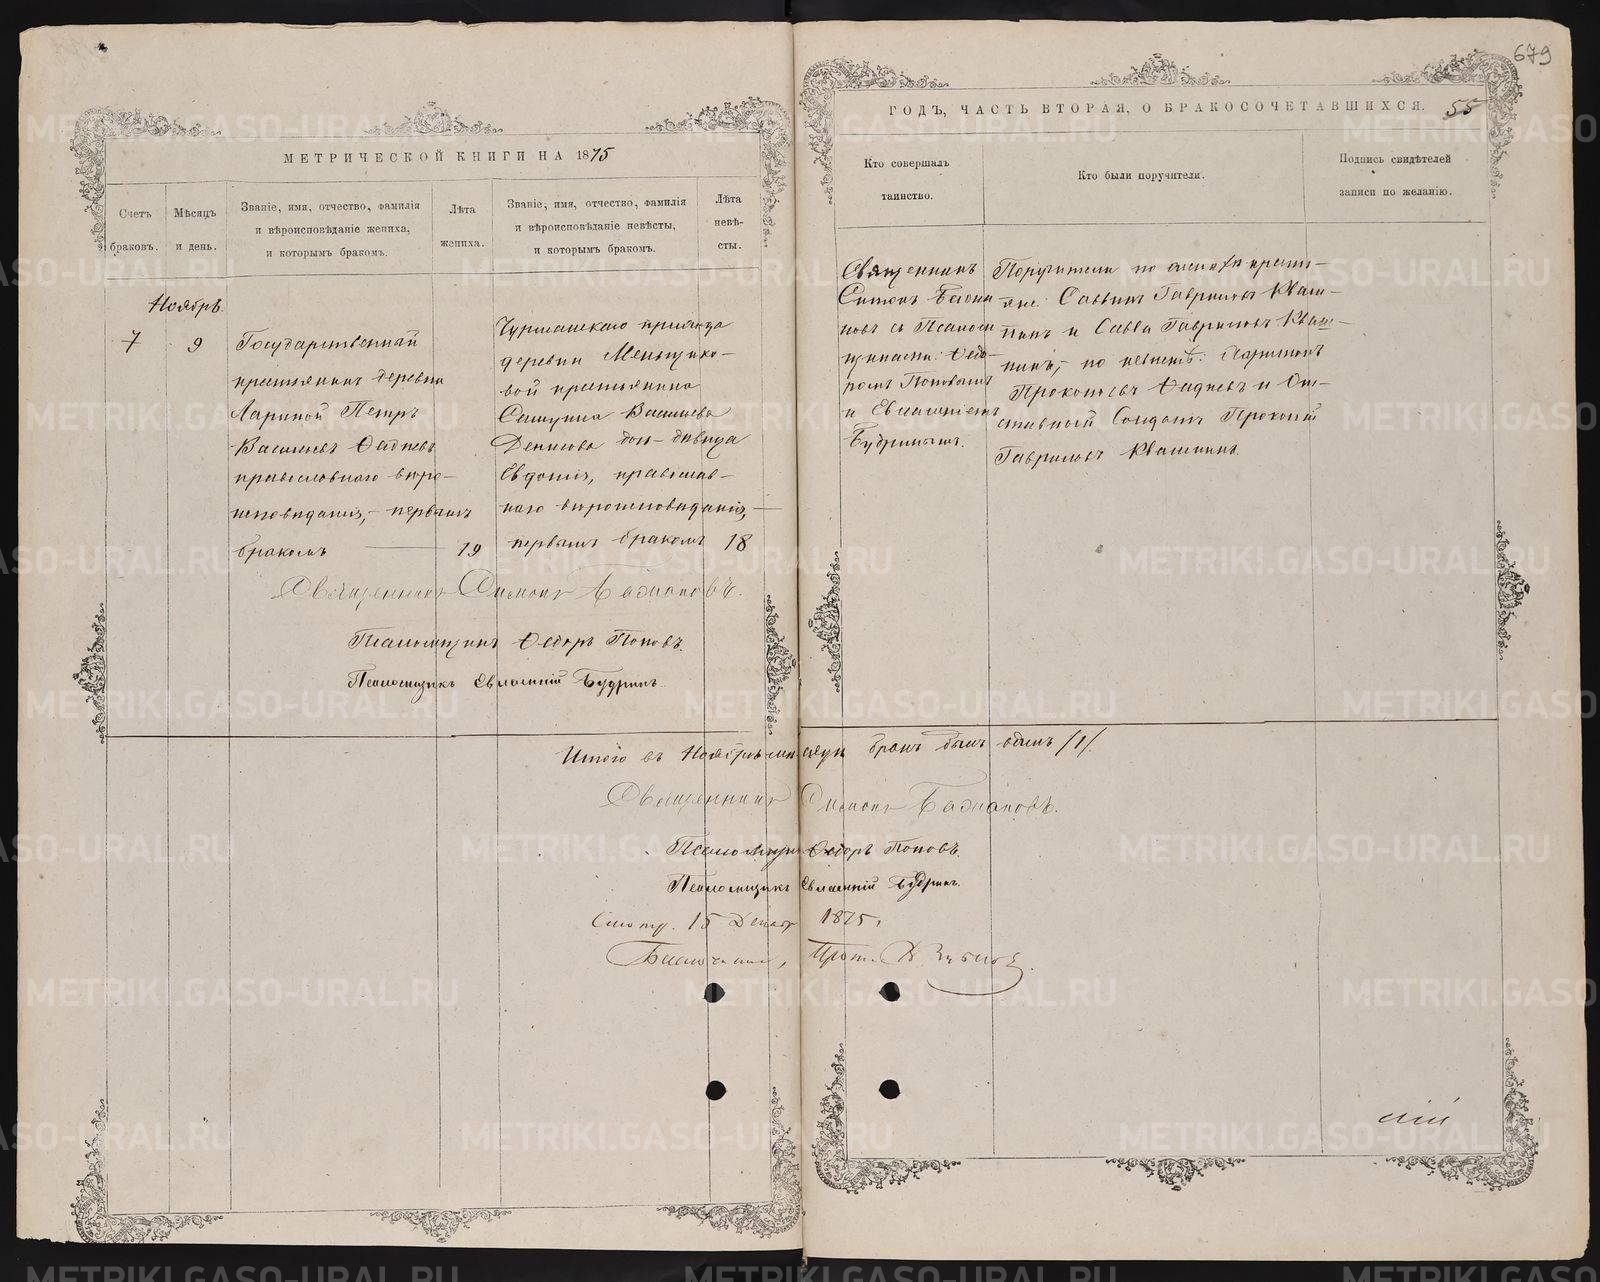 679
МЕТРИЧЕСКОЙ КНИГИ НА 1875
ГОДЪ, ЧАСТЬ ВТОРАЯ, О БРАКОСОЧЕТАВШИХСЯ. 55
Счетъ
браковъ.
Мѣсяцъ
и день.
Званіе, имя, отчество, фамилія
и вѣроисповѣданіе жениха,
и которымъ бракомъ.
Лѣта
жениха.
Званіе, имя, отчество, фамилія
и вѣроисповѣданіе невѣсты,
и которымъ бракомъ.
Лѣта
невѣ-
сты.
Кто совершалъ
таинство.
Кто были поручители.
Подпись свидѣтелей
записи по желанію.
Ноябрь.
7
9
Государственный
крестьянинъ деревни
Лариной Петръ
Васильевъ
православнаго вѣро-
исповѣданія,- первымъ
бракомъ
19
прихода
деревни
вой крестьянина
Васильева
Денисова дочь девица
Евдокія, православ-
наго вѣроисповѣданія,
первымъ бракомъ
18
Священникъ
Симонъ
новъ съ Псалом
щиками: Ѳедо-
ромъ Поповымъ
и Евлампіемъ
Будринымъ.
Поручители по женихѣ кресть-
яне: Гавриловъ Кваш-
нинъ и Савва Гавриловъ Кваш-
нинъ,- по невѣстѣ: Ларионъ
Прокопьевъ и От-
ставной Солдатъ Прокопій
Гавриловъ Квашнинъ.
Священникъ Симонъ Бажановъ.
Псаломщикъ Ѳедоръ Поповъ.
Псаломщикъ Евлампій Будринъ.
Итого въ Ноябрѣ месяцѣ бракъ былъ одинъ /1/.
Священникъ Симонъ Бажановъ.
Псаломщикъ Ѳедоръ Поповъ.
Псаломщикъ Евлампій Будринъ.
15 Декабр 1875,
Благочинный, Прот.
METRIKI.GASO-URAL.RU